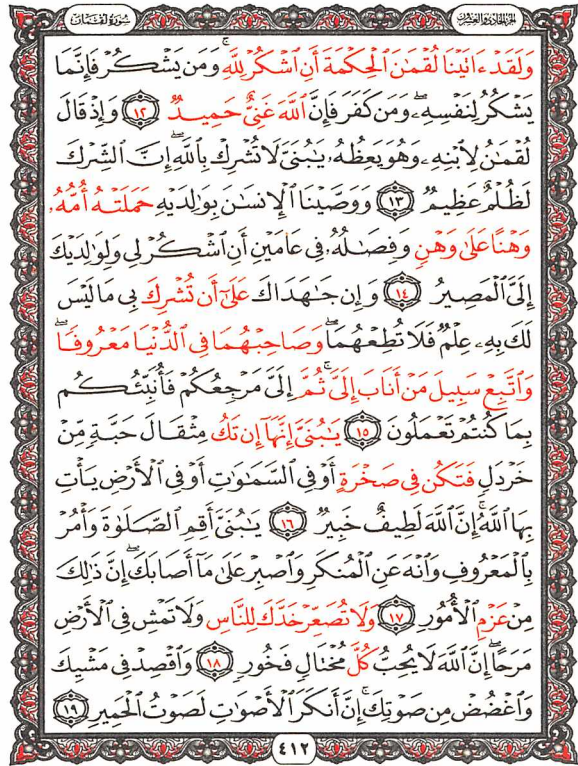 الجزء الحادي والعشرون
سورة لقمان
وَلَقَدْ ءَاتَيْنَا لُقْمَٰنَ الْحِكْمَةَ أَنِ اشْكُرْ لِلَّهِ ۚ وَمَن يَشْكُرْ فَإِنَّمَا
يَشْكُرُ لِنَفْسِهِۦ ۖ وَمَن كَفَرَ فَإِنَّ اللَّهَ غَنِيٌّ حَمِيدٌ ١٢ وَإِذْ قَالَ
لُقْمَٰنُ لِابْنِهِۦ وَهُوَ يَعِظُهُۥ يَٰبُنَيَّ لَا تُشْرِكْ بِاللَّهِ ۖ إِنَّ الشِّرْكَ
لَظُلْمٌ عَظِيمٌ ١٣ وَوَصَّيْنَا الْإِنسَٰنَ بِوَٰلِدَيْهِ حَمَلَتْهُ أُمُّهُۥ
وَهْنًا عَلَىٰ وَهْنٍ وَفِصَٰلُهُۥ فِي عَامَيْنِ أَنِ اشْكُرْ لِي وَلِوَٰلِدَيْكَ
إِلَيَّ الْمَصِيرُ ١٤ وَإِن جَٰهَدَاكَ عَلَىٰٓ أَن تُشْرِكَ بِي مَا لَيْسَ
لَكَ بِهِۦ عِلْمٌ فَلَا تُطِعْهُمَا ۖ وَصَاحِبْهُمَا فِي الدُّنْيَا مَعْرُوفًا ۖ
وَاتَّبِعْ سَبِيلَ مَنْ أَنَابَ إِلَيَّ ۚ ثُمَّ إِلَيَّ مَرْجِعُكُمْ فَأُنَبِّئُكُم
بِمَا كُنتُمْ تَعْمَلُونَ ١٥ يَٰبُنَيَّ إِنَّهَآ إِن تَكُ مِثْقَالَ حَبَّةٍ مِّنْ
خَرْدَلٍ فَتَكُن فِي صَخْرَةٍ أَوْ فِي السَّمَٰوَٰتِ أَوْ فِي الْأَرْضِ يَأْتِ
بِهَا اللَّهُ ۚ إِنَّ اللَّهَ لَطِيفٌ خَبِيرٌ ١٦ يَٰبُنَيَّ أَقِمِ الصَّلَوٰةَ وَأْمُرْ
بِالْمَعْرُوفِ وَانْهَ عَنِ الْمُنكَرِ وَاصْبِرْ عَلَىٰ مَآ أَصَابَكَ ۖ إِنَّ ذَٰلِكَ
مِنْ عَزْمِ الْأُمُورِ ١٧ وَلَا تُصَعِّرْ خَدَّكَ لِلنَّاسِ وَلَا تَمْشِ فِي الْأَرْضِ
مَرَحًا ۖ إِنَّ اللَّهَ لَا يُحِبُّ كُلَّ مُخْتَالٍ فَخُورٍ ١٨ وَاقْصِدْ فِي مَشْيِكَ
وَاغْضُضْ مِن صَوْتِكَ ۚ إِنَّ أَنكَرَ الْأَصْوَٰتِ لَصَوْتُ الْحَمِيرِ ١٩
٤١٢